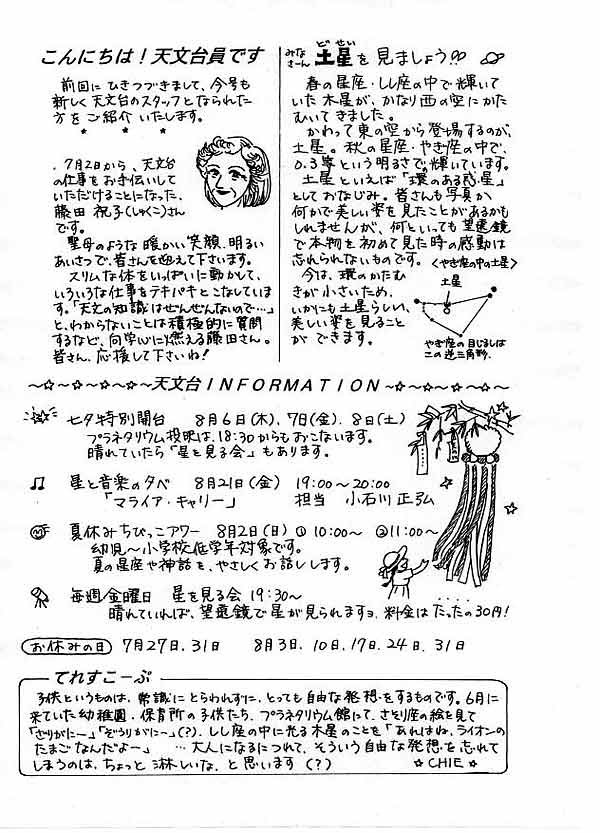 こんにちは！天文台員です
前回にひきつづきまして、今号も
新しく天文台のスタッフとなられた
方をご紹介いたします。
＊ ＊ ＊
7月2日から、天文台
の仕事をお手伝いして
いただけることになった、
藤田 祝子(しゃくこ)さん
です。
聖母のような暖かい笑顔、明るい
あいさつで、皆さんを迎えて下さいます。
スリムな体をいっぱいに動かして、
いろいろな仕事をテキパキとこなしていま
す。「天文の知識はぜんぜんないので…」
と、わからないことは積極的に質問
するなど、向学心に燃える藤田さん。
皆さん、応援して下さいね！
みなさーん 土星を見ましょう!!
どせい
春の星座・しし座の中で輝いて
いた木星が、かなり西の空にかた
むいてきました。
かわって東の空から登場するのが、
土星。秋の星座・やぎ座の中で、
0.3等という明るさで輝いています。
土星といえば「環のある惑星」
としておなじみ。皆さんも写真か
何かで美しい姿を見たことがあるかも
しれませんが、何といっても望遠鏡
で本物を初めて見た時の感動は
忘れられないものです。
今は、環のかたむ
きが小さいため、
いかにも土星らしい、
美しい姿を見ること
ができます。
〈やぎ座の中の土星〉
土星
やぎ座の目じるしは
この逆三角形。
～☆～☆～☆～☆～天文台INFORMATION～☆～☆～☆～☆～
七夕特別開台 8月6日(木)、7日(金)、8日(土)
プラネタリウム投映は、18:30からもおこないます。
晴れていたら「星を見る会」もあります。
♫ 星と音楽の夕べ 8月21日(金) 19:00～20:00
「マライア・キャリー」 担当 小石川 正弘
夏休みちびっこアワー 8月2日(日) ①10:00～ ②11:00～
幼児～小学校低学年対象です。
夏の星座や神話を、やさしくお話しします。
毎週金曜日 星を見る会 19:30～
晴れていれば、望遠鏡で星が見られますョ。料金はたったの30円！
お休みの日 7月27日、31日 8月3日、10日、17日、24日、31日
てれすこーぷ
子供というものは、常識にとらわれずに、とっても自由な発想をするものです。6月に
来ていた幼稚園・保育所の子供たち、プラネタリウム館にて、さそり座の絵を見て
「ざりがにー」「ぞうりがにー」(？)、しし座の中に光る木星のことを「あれはね、ライオンの
たまごなんだよー」 …大人になるにつれて、そういう自由な発想を忘れて
しまうのは、ちょっと淋しいな、と思います(？) ☆CHIE☆